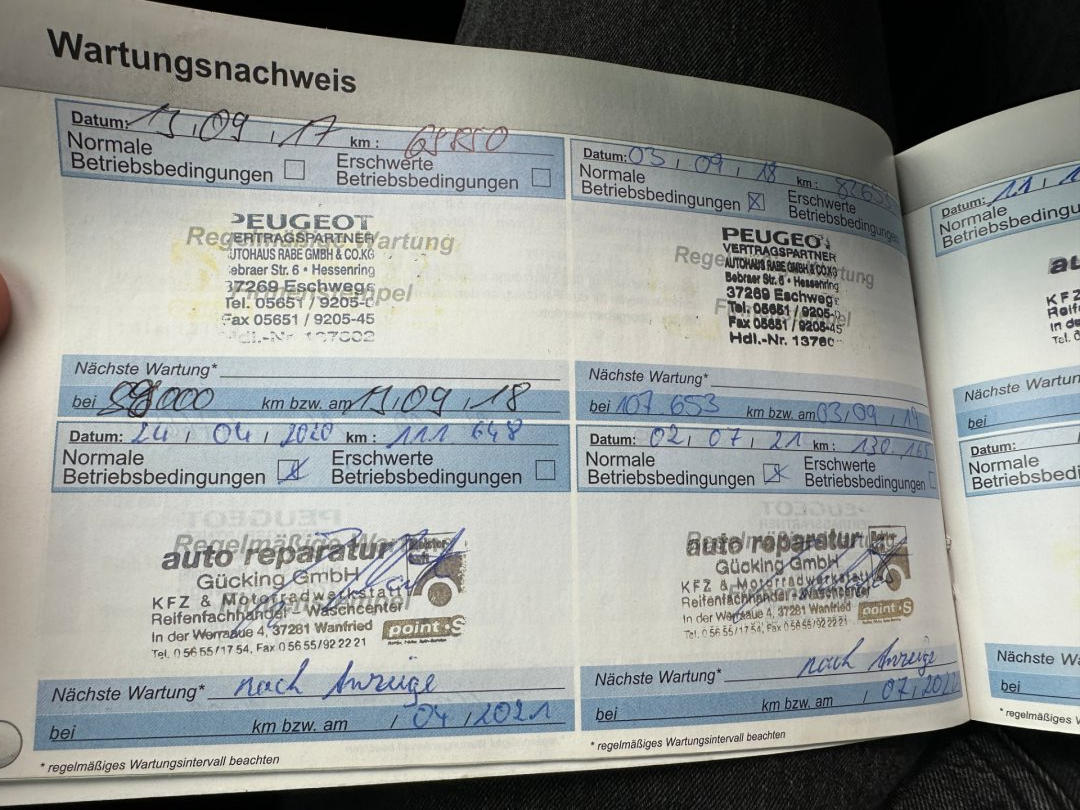 Wartungsnachweis
Datum: 13,09,17 km :
Normale Betriebsbedingungen
Erschwerte Betriebsbedingungen
PEUGEOT
VERTRAGSPARTNER
AUTOHAUS RABE GMBH & CO.KG
Bebraer Str. 6 • Hessenring
37269 Eschwege
Tel. 05651 / 9205-
Fax 05651 / 9205-45
Hdl.-Nr.
Regelmäßige Wartung
Nächste Wartung*
bei km bzw. am 13,09,18
Datum: 03,09,18 km :
Normale Betriebsbedingungen
Erschwerte Betriebsbedingungen
PEUGEOT
VERTRAGSPARTNER
AUTOHAUS RABE GMBH & CO.KG
Bebraer Str. 6 • Hessenring
37269 Eschwege
Tel. 05651 / 9205-
Fax 05651 / 9205-45
Hdl.-Nr. 13760
Nächste Wartung*
bei 107 653 km bzw. am 03,09,19
Datum: 24, 04, 2020 km : 111 648
Normale Betriebsbedingungen
Erschwerte Betriebsbedingungen
Regelmäßige Wartung
auto reparatur
Gücking GmbH
KFZ & Motorradwerkstatt
Reifenfachhandel - Waschcenter
In der Werraaue 4, 37281 Wanfried
Tel. 0 56 55/17 54, Fax 0 56 55/92 22 21
point S
Nächste Wartung* nach Anzeige
bei km bzw. am / 04 / 2021
* regelmäßiges Wartungsintervall beachten
Datum: 02, 07, 21 km :
Normale Betriebsbedingungen
Erschwerte Betriebsbedingungen
auto reparatur
Gücking GmbH
KFZ & Motorradwerkstatt
Reifenfachhandel - Waschcenter
In der Werraaue 4, 37281 Wanfried
Tel. 0 56 55/17 54, Fax 0 56 55/92 22 21
point S
Nächste Wartung* nach Anzeige
bei km bzw. am / 07/2022
* regelmäßiges Wartungsintervall beachten
Datum: 11,
Normale
au
KFZ
Reif
In de
Tel. 0
Nächste
bei
Datum:
Normale
Nächste
bei
* regelmäßiges